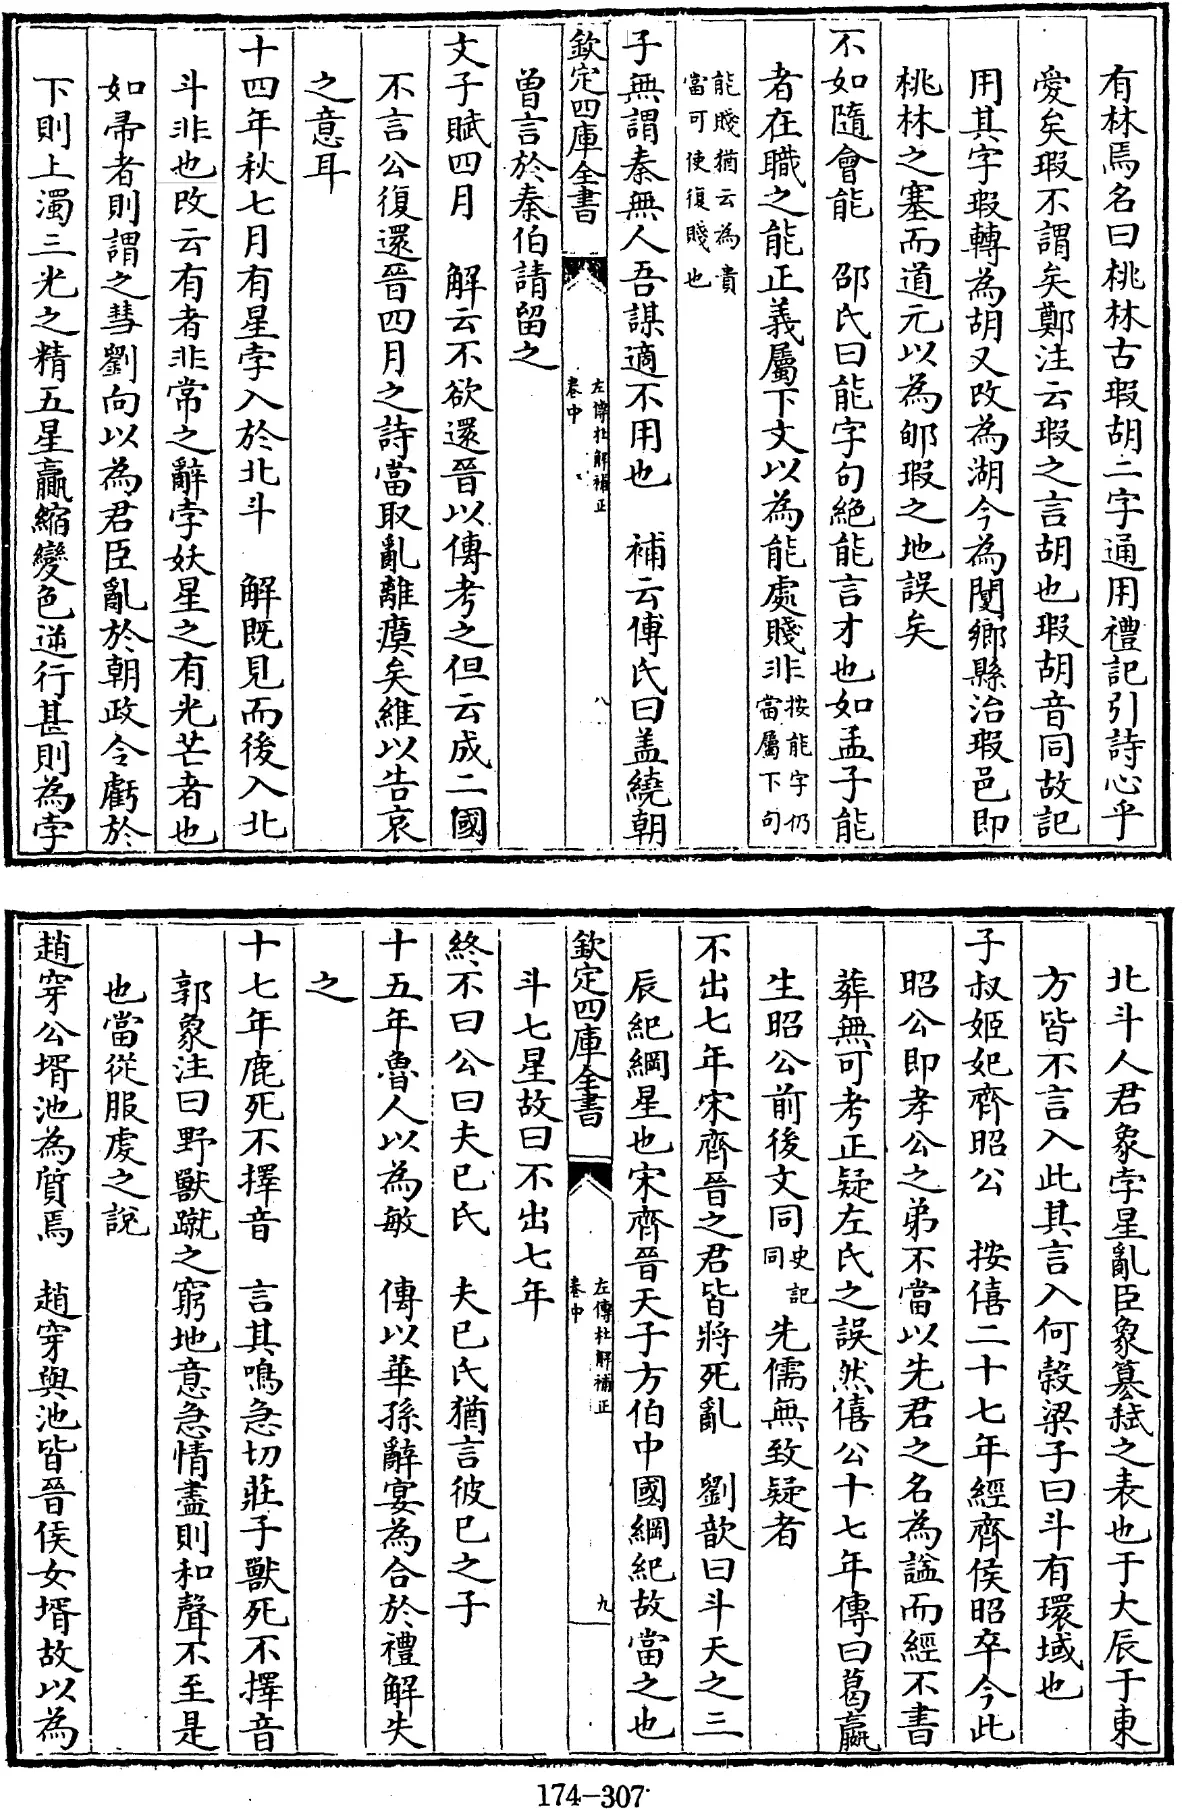 有林焉名曰桃林古瑕胡二字通用禮記引詩心乎
愛矣瑕不謂矣鄭注云瑕之言胡也瑕胡音同故記
用其字瑕轉為胡又改為湖今為閿鄉縣治瑕邑即
桃林之塞而道元以為郇瑕之地誤矣
不如隨會能　邵氏曰能字句絶能言才也如孟子能
者在職之能正義屬下文以為能處賤非按能字仍當屬下句
能賤猶云為貴當可使復賤也
子無謂秦無人吾謀適不用也　補云傅氏曰盖繞朝
欽定四庫全書　左傳杜解補正　卷中　八
曽言於秦伯請留之
文子賦四月　解云不欲還晉以傳考之但云成二國
不言公復還晉四月之詩當取亂離瘼矣維以告哀
之意耳
十四年秋七月有星孛入於北斗　解既見而後入北
斗非也改云有者非常之辭孛妖星之有光芒者也
如帚者則謂之彗劉向以為君臣亂於朝政令虧於
下則上濁三光之精五星贏縮變色逆行甚則為孛
北斗人君象孛星亂臣象簒弑之表也于大辰于東
方皆不言入此其言入何榖梁子曰斗有環域也
子叔姬妃齊昭公　按僖二十七年經齊侯昭卒今此
昭公即孝公之弟不當以先君之名為諡而經不書
葬無可考正疑左氏之誤然僖公十七年傳曰葛嬴
生昭公前後文同史記同先儒無致疑者
不出七年宋齊晉之君皆將死亂　劉歆曰斗天之三
辰紀綱星也宋齊晉天子方伯中國綱紀故當之也
欽定四庫全書　左傳杜解補正　卷中　九
斗七星故曰不出七年
終不曰公曰夫已氏　夫已氏猶言彼已之子
十五年魯人以為敏　傳以華孫辭宴為合於禮解失
之
十七年鹿死不擇音　言其鳴急切莊子獸死不擇音
郭象注曰野獸蹴之窮地意急情盡則和聲不至是
也當從服虔之說
趙穿公壻池為質焉　趙穿與池皆晉侯女壻故以為
174-307